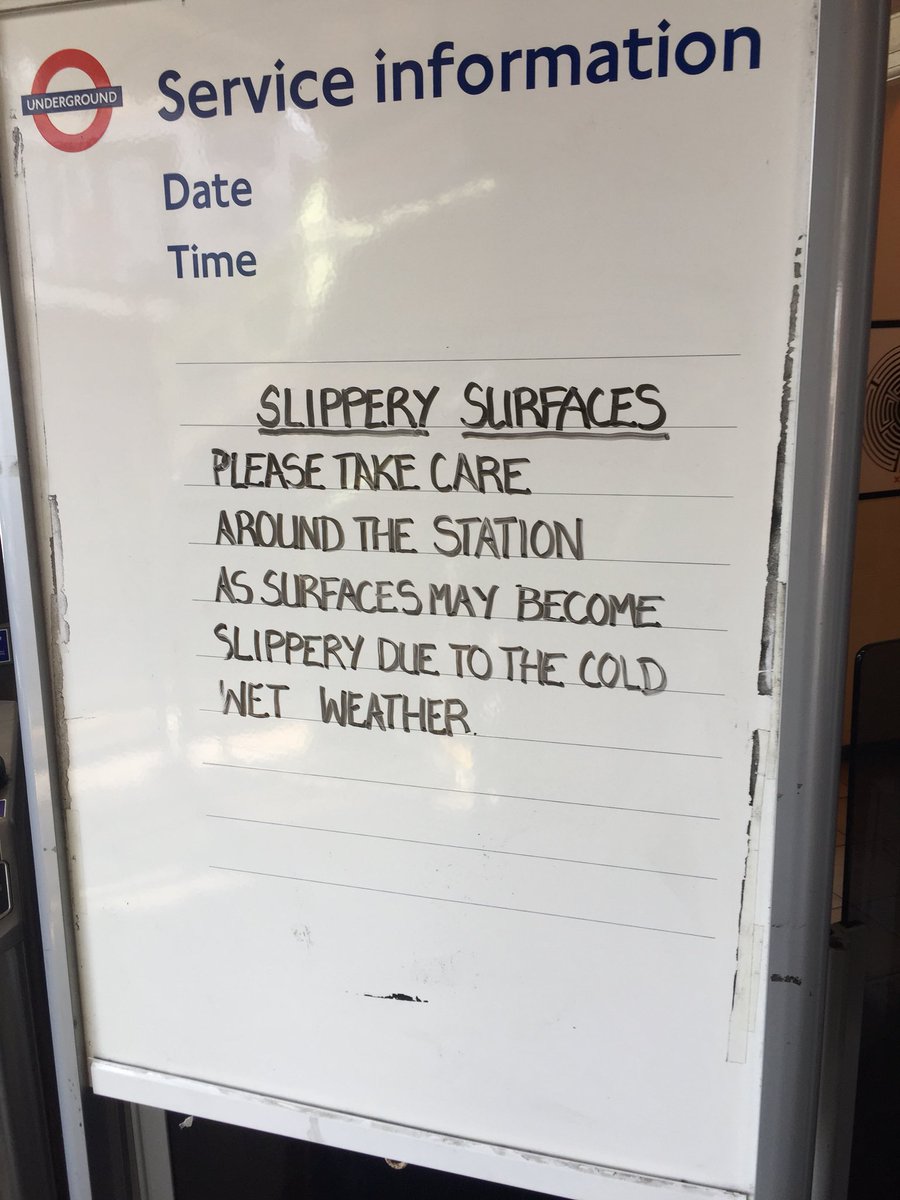 UNDERGROUND
Service information
Date
Time
SLIPPERY SURFACES
PLEASE TAKE CARE
AROUND THE STATION
AS SURFACES MAY BECOME
SLIPPERY DUE TO THE COLD
WET WEATHER.